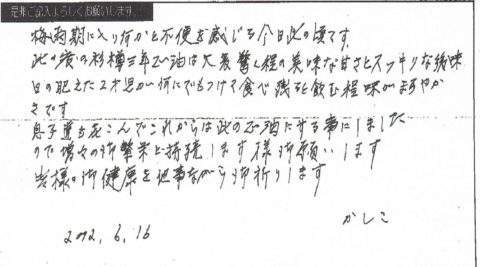 是非ご記入よろしくお願いします。
梅雨期に入り何かと不便を感じる今日此の頃です。
此の度の杉樽三年しょう油は大変驚く程の美味な甘さとスッキリな後味
目の肥えた2才児が何にでもつけて食べ残ると飲む程味がまろやか
さです
息子達も喜こんでこれからは此のしょう油にする事にしました
ので増々の御繁栄と持続します様御願いします
皆様の御健康を他事ながら御祈りします
かしこ
2012.6.16